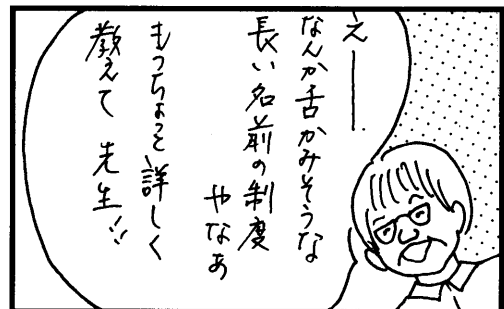 えーー
なんか舌かみそうな
長い名前の制度
やなあ
もうちょっと詳しく
教えて先生!!